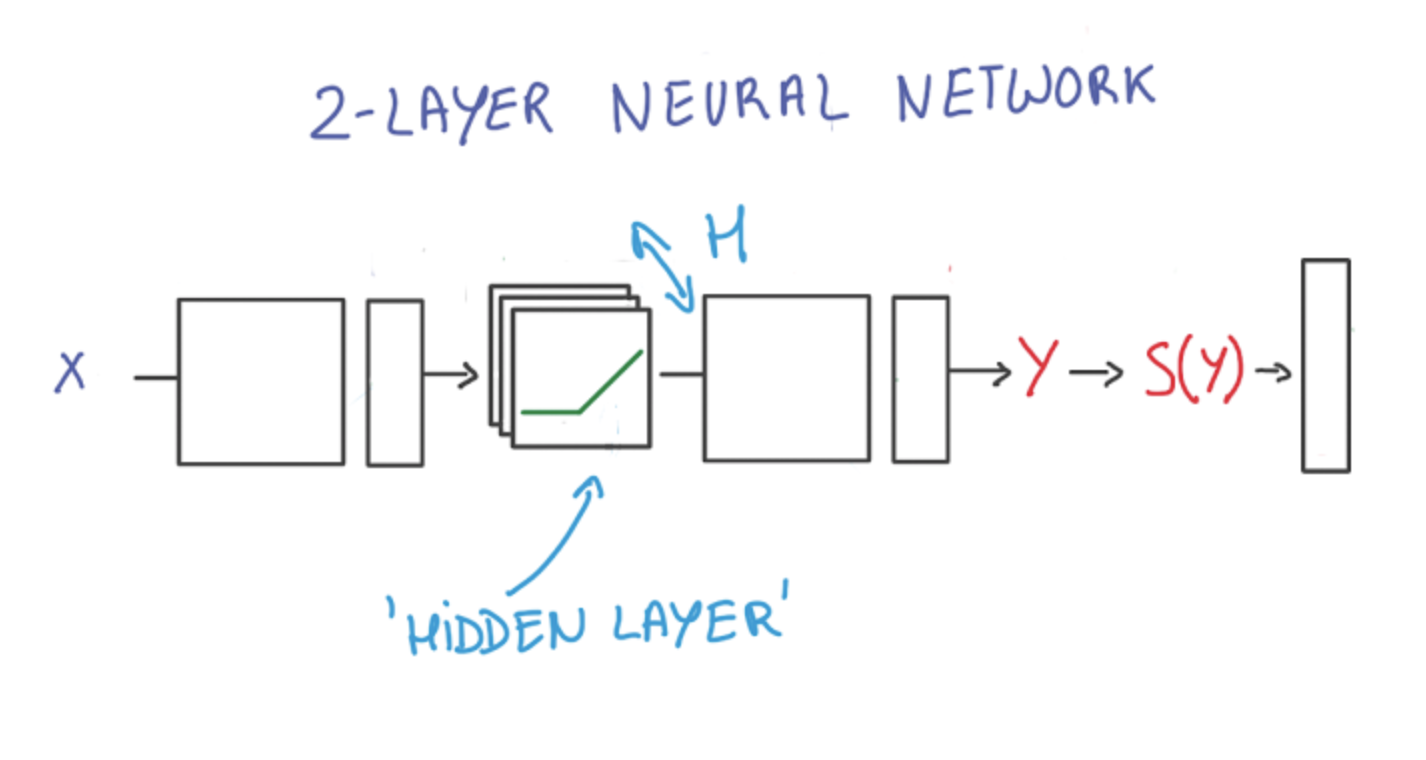 2-LAYER NEURAL NETWORK
H
X
Y
S(Y)
'HiDDEN LAYER'